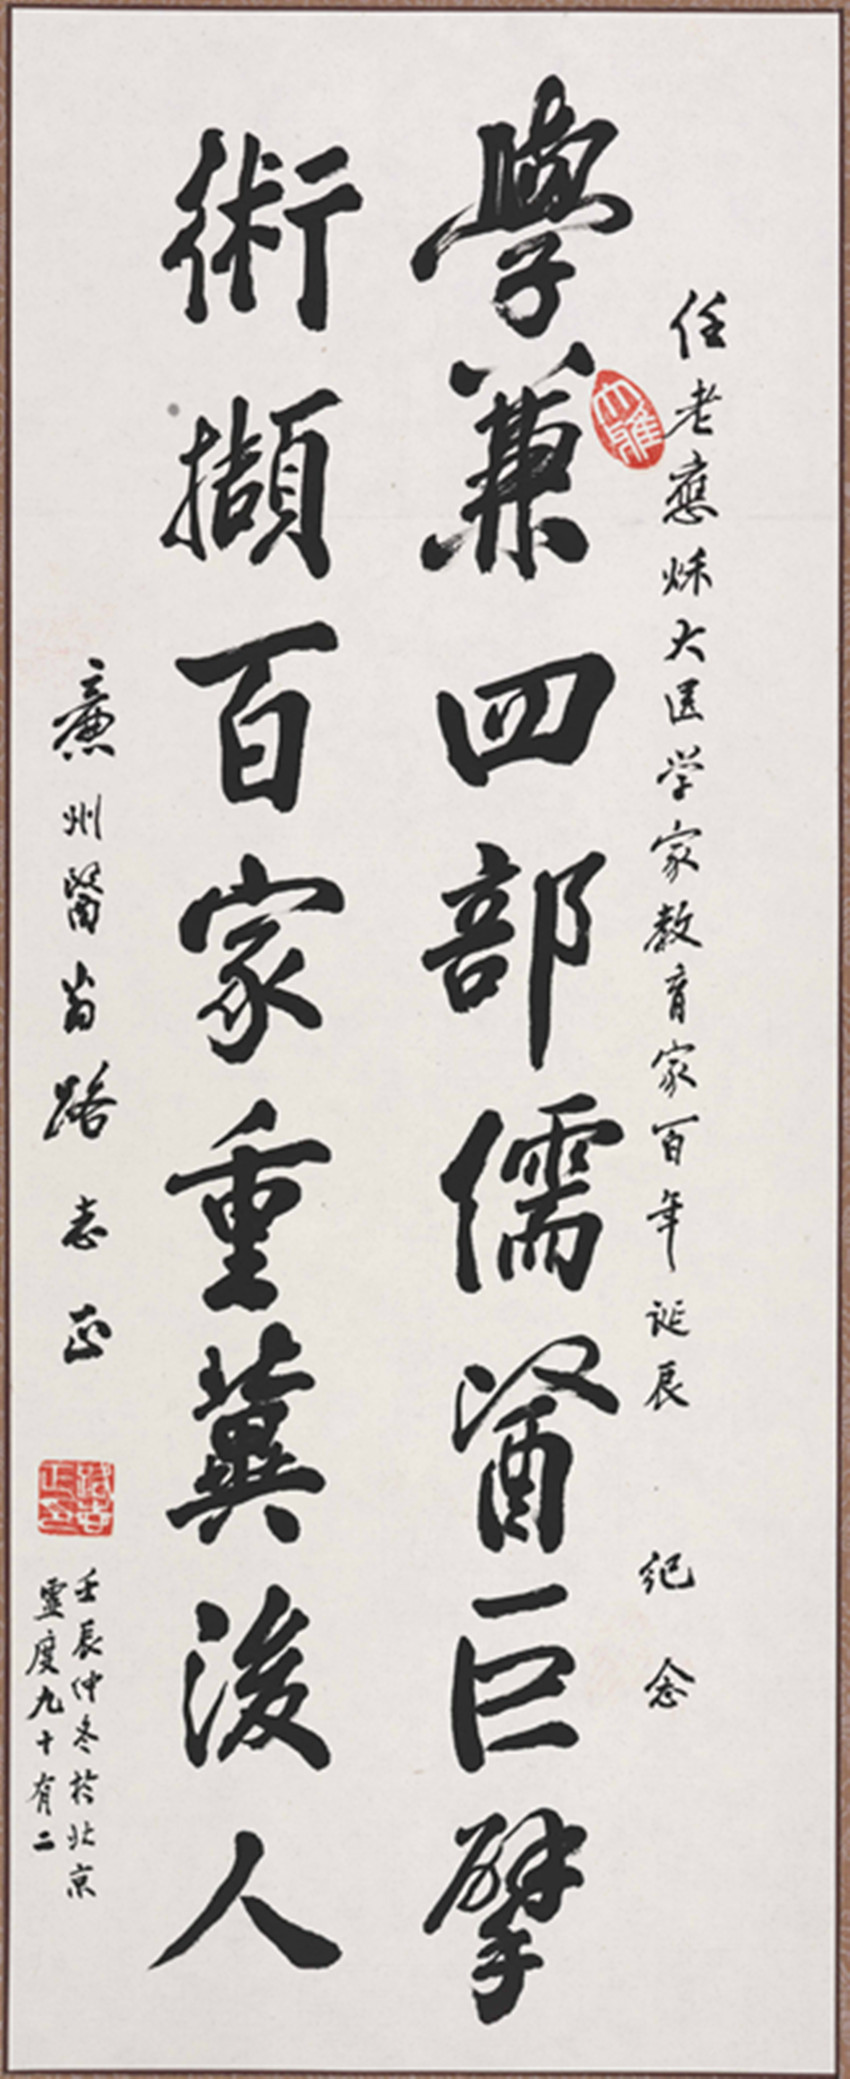 任老應秌大医学家教育家百年诞辰 纪念
學兼四部儒醫巨擘
術擷百家重冀後人
州醫翁路志正
路志正印
壬辰仲冬於北京
虛度九十有二